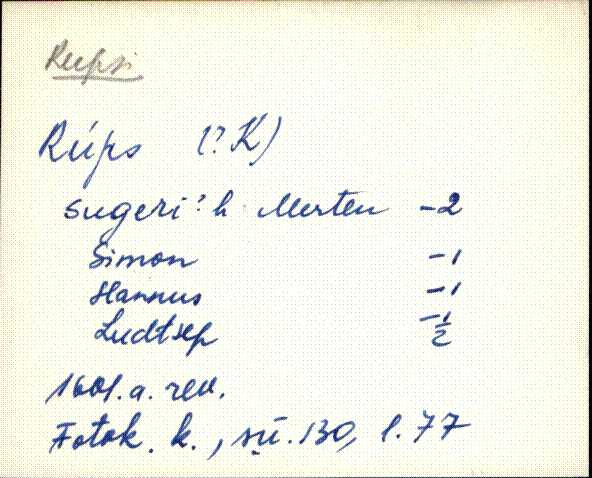 Rupsi
Rúps (?K)
sugeri? h Merten -2
Simon -1
Hannus -1
Ludtsep -½
1601.a. rev.
Fotok. k., sü. 130, l. 77